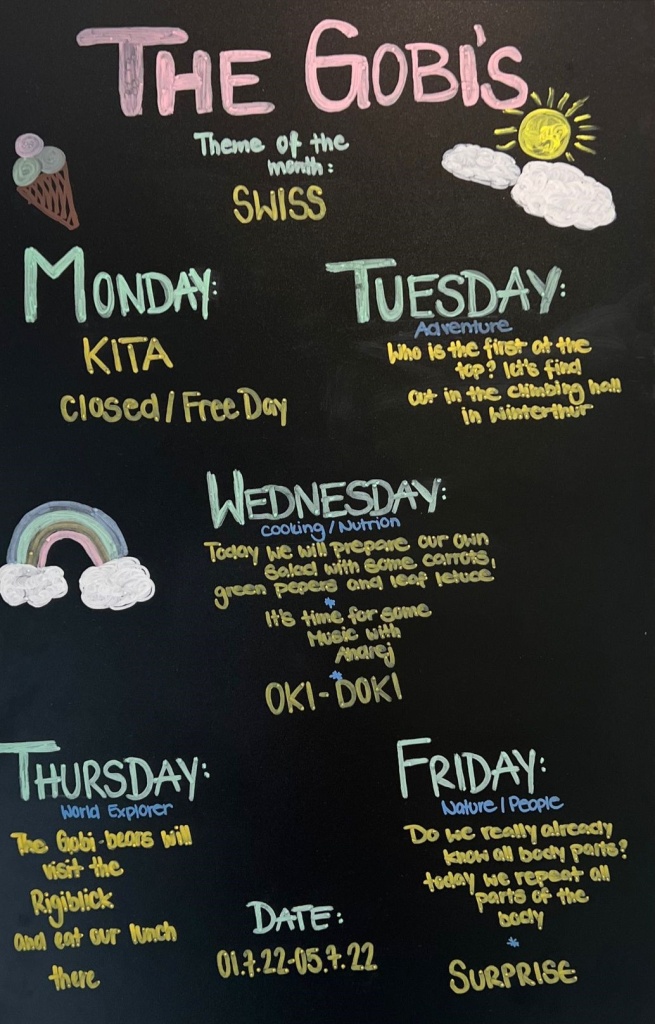 THE GOBI'S
Theme of the
month:
SWISS
MONDAY:
KITA
closed/Free Day
TUESDAY:
Adventure
Who is the first at the
top? let's find
out in the climbing hall
in Winterthur
WEDNESDAY:
Cooking/Nutrion
Today we will prepare our own
Salad with some carrots,
green pepers and leaf letuce
*
It's time for some
Music with
Andrej
*
OKI-DOKI
THURSDAY:
World Explorer
The Gobi-bears will
visit the
Rigiblick
and eat our lunch
there
FRIDAY:
Nature/People
Do we really already
know all body parts?
today we repeat all
parts of the
body
*
SURPRISE
DATE:
01.7.22-05.7.22